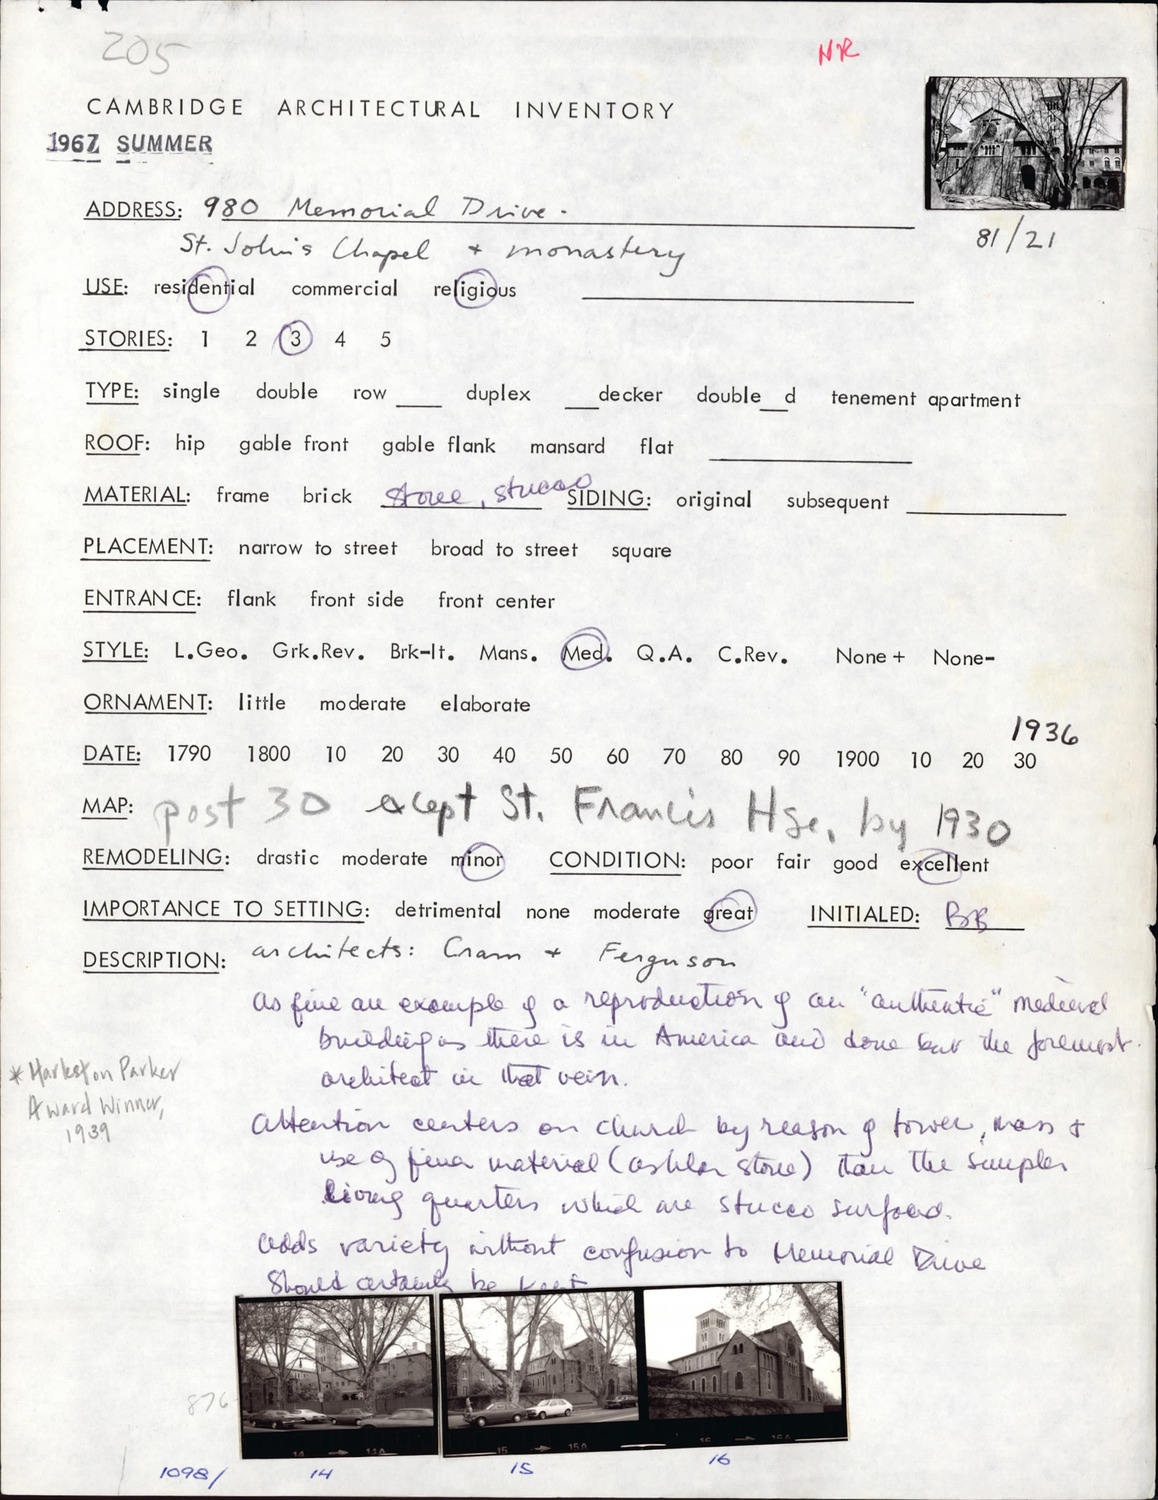 205
NR
CAMBRIDGE ARCHITECTURAL INVENTORY
1967 SUMMER
ADDRESS: 980 Memorial Drive.
81/21
St. John's Chapel + monastery
USE: residential commercial religious
STORIES: 1 2 3 4 5
TYPE: single double row ___ duplex ___decker double__d tenement apartment
ROOF: hip gable front gable flank mansard flat
MATERIAL: frame brick stone, stucco SIDING: original subsequent
PLACEMENT: narrow to street broad to street square
ENTRANCE: flank front side front center
STYLE: L.Geo. Grk.Rev. Brk-It. Mans. Med. Q.A. C.Rev. None+ None-
ORNAMENT: little moderate elaborate
1936
DATE: 1790 1800 10 20 30 40 50 60 70 80 90 1900 10 20 30
MAP: post 30 except St. Francis Hse, by 1930
REMODELING: drastic moderate minor CONDITION: poor fair good excellent
IMPORTANCE TO SETTING: detrimental none moderate great INITIALED: BB
DESCRIPTION: architects: Cram + Ferguson
as fine an example of a reproduction of an "authentic" medieval
building as there is in America and done by the foremost
architect in that vein.
* Harleston Parker
Award Winner,
1939
Attention centers on church by reason of tower, mass +
use of finer material (ashlar stone) than the simpler
living quarters which are stucco surfaced.
Adds variety without confusion to Memorial Drive
Should certainly be kept
876
14 14A
15 15A
16 16A
1098/ 14 15 16